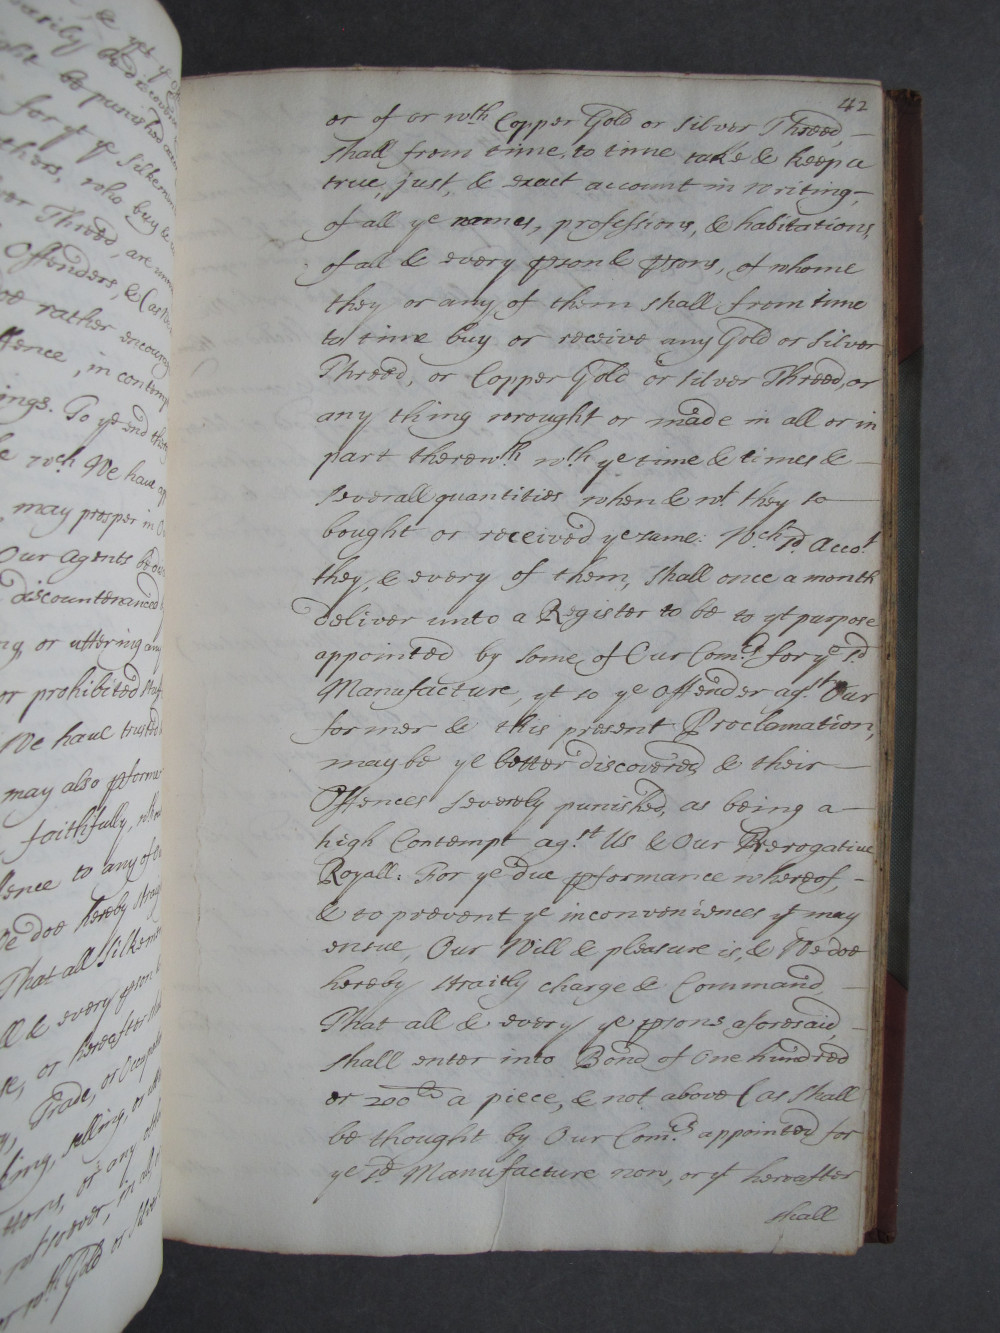 42
or of or wth Copper Gold or Silver Threed,
shall from time, to time take & keep a
true, just, & exact account in writing,
of all ye names, professions, & habitations,
of all & every pson & psons, of whome
they or any of them shall from time
to time buy or receive any Gold or Silver
Threed, or Copper Gold or Silver Threed, or
any thing wrought or made in all or in
part therewth, wth ye time & times &
severall quantities when & wt they so
bought or received ye same: Wch sd Accot
they, & every of them, shall once a month
deliver unto a Register to be to yt purpose
appointed by some of Our Comrs for ye sd
Manufacture, yt so ye Offender agst Our
former & this present Proclamation,
may be ye better discovered & their
Offences severely punished, as being a
high Contempt agst Us & Our Prerogative
Royall: For ye due pformance whereof,
& to prevent ye inconveniences yt may
ensue, Our Will & pleasure is, & We doe
hereby straitly charge & Command
That all & every ye psons aforesaid
shall enter into Bond of One hundred
or 200 a piece, & not above (as shall
be thought by Our Comrs appointed for
ye sd Manufacture now, or yt hereafter
shall
for ye
others, who buy &
Threed, are
Offenders, & (as
rather encourage
in contempt
To ye end
wch We have
may prosper in
Our Agents be
discountenanced
or uttering any
or prohibited
We have trusted
may also pforme
faithfully,
to any of
We doe hereby
That all Silkemen
& every pson
or hereafter
Trade, or Occupation
selling, or
or any
wth Gold or Silver